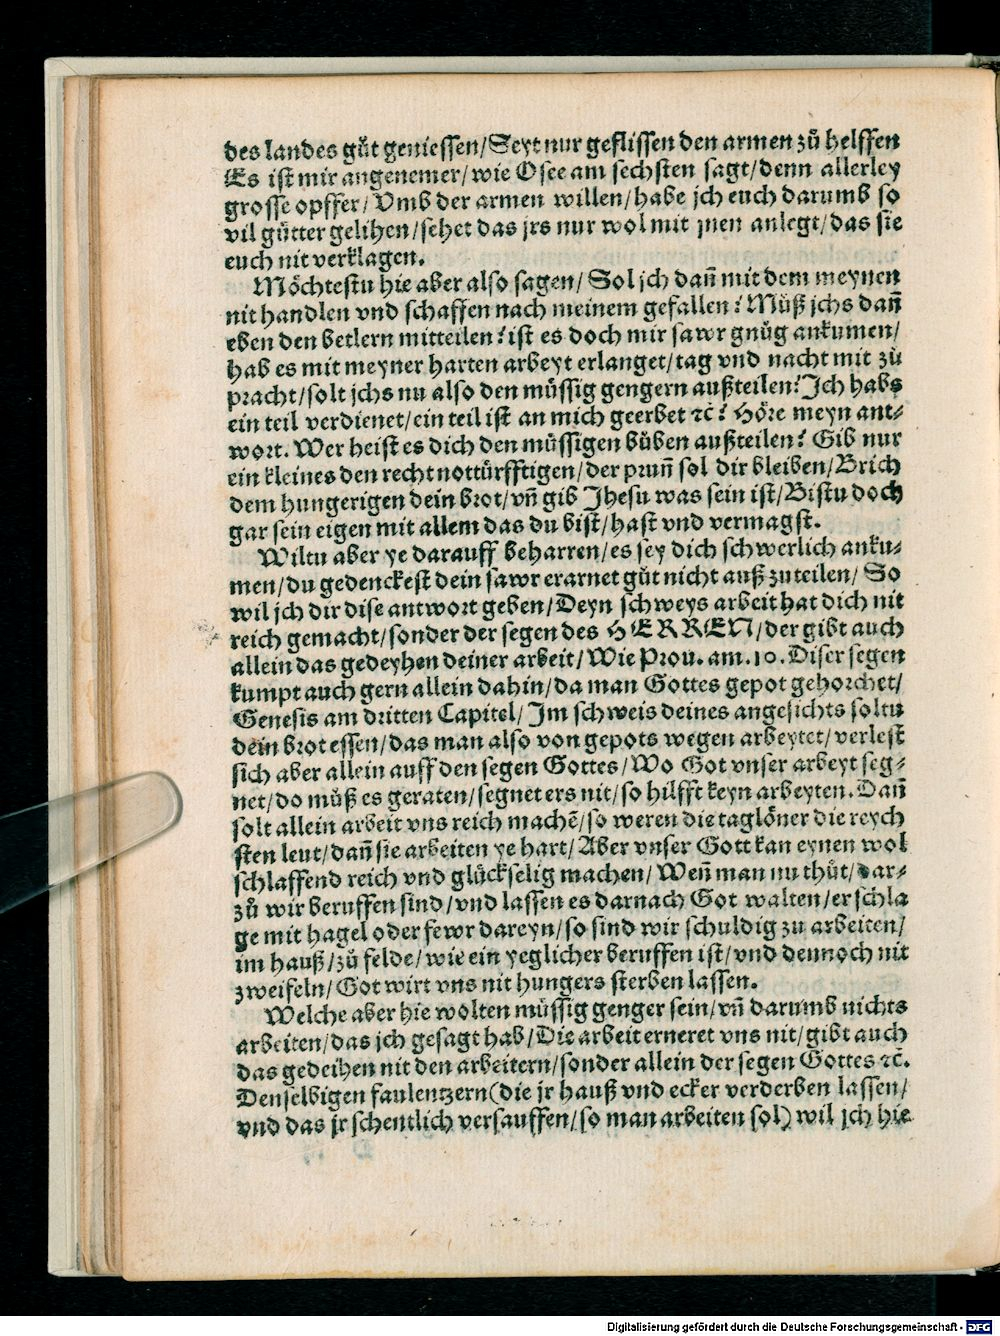 des landes gůt geniessen/Seyt nur geflissen den armen zů helffen
Es ist mir angenemer/wie Osee am sechsten sagt/denn allerley
grosse opffer/Vmb der armen willen/habe jch euch darumb so
vil gütter gelihen/sehet das jrs nur wol mit jnen anlegt/das sie
euch nit verklagen.
Möchtestu hie aber also sagen/Sol jch dañ mit dem meynen
nit handlen vnd schaffen nach meinem gefallen? Můß jchs dañ
eben den betlern mitteilen? ist es doch mir sawr gnůg ankumen/
hab es mit meyner harten arbeyt erlanget/tag vnd nacht mit zů
pracht/solt jchs nu also den müssig gengern außteilen? Jch habs
ein teil verdienet/ein teil ist an mich geerbet ꝛc̃? Höre meyn ant⸗
wort. Wer heist es dich den müssigen bůben außteilen? Gib nur
ein kleines den recht nottürfftigen/der prunñ sol dir bleiben/Brich
dem hungerigen dein brot/vñ gib Jhesu was sein ist/Bistu doch
gar sein eigen mit allem das du bist/hast vnd vermagst.
Wiltu aber ye darauff beharren/es sey dich schwerlich anku⸗
men/du gedenckest dein sawr erarnet gůt nicht auß zuteilen/So
wil jch dir dise antwort geben/Deyn schweys arbeit hat dich nit
reich gemacht/sonder der segen des HERREN/der gibt auch
allein das gedeyhen deiner arbeit/Wie Prou. am. 10. Diser segen
kumpt auch gern allein dahin/da man Gottes gepot gehorchet/
Genesis am dritten Capitel/Jm schweis deines angesichts soltu
dein brot essen/das man also von gepots wegen arbeytet/verlest
sich aber allein auff den segen Gottes/Wo Got vnser arbeyt seg⸗
net/do můß es geraten/segnet ers nit/so hilfft keyn arbeyten. Dañ
solt allein arbeit vns reich machẽ/so weren die taglöner die reych
sten leut/dañ sie arbeiten ye hart/Aber vnser Gott kan eynen wol
schlaffend reich vnd glückselig machen/Weñ man nu thůt/dar⸗
zů wir beruffen sind/vnd lassen es darnach Got walten/er schla
ge mit hagel oder fewr dareyn/so sind wir schuldig zu arbeiten/
im hauß/zů felde/wie ein yeglicher beruffen ist/vnd dennoch nit
zweifeln/Got wirt vns nit hungers sterben lassen.
Welche aber hie wolten müssig genger sein/vñ darumb nichts
arbeiten/das jch gesagt hab/Die arbeit erneret vns nit/gibt auch
das gedeihen nit den arbeitern/sonder allein der segen Gottes ꝛc̃.
Denselbigen faulentzern(die jr hauß vnd ecker verderben lassen/
vnd das jr schentlich versauffen/so man arbeiten sol) wil jch hie
Digitalisierung gefördert durch die Deutsche Forschungsgemeinschaft - DFG